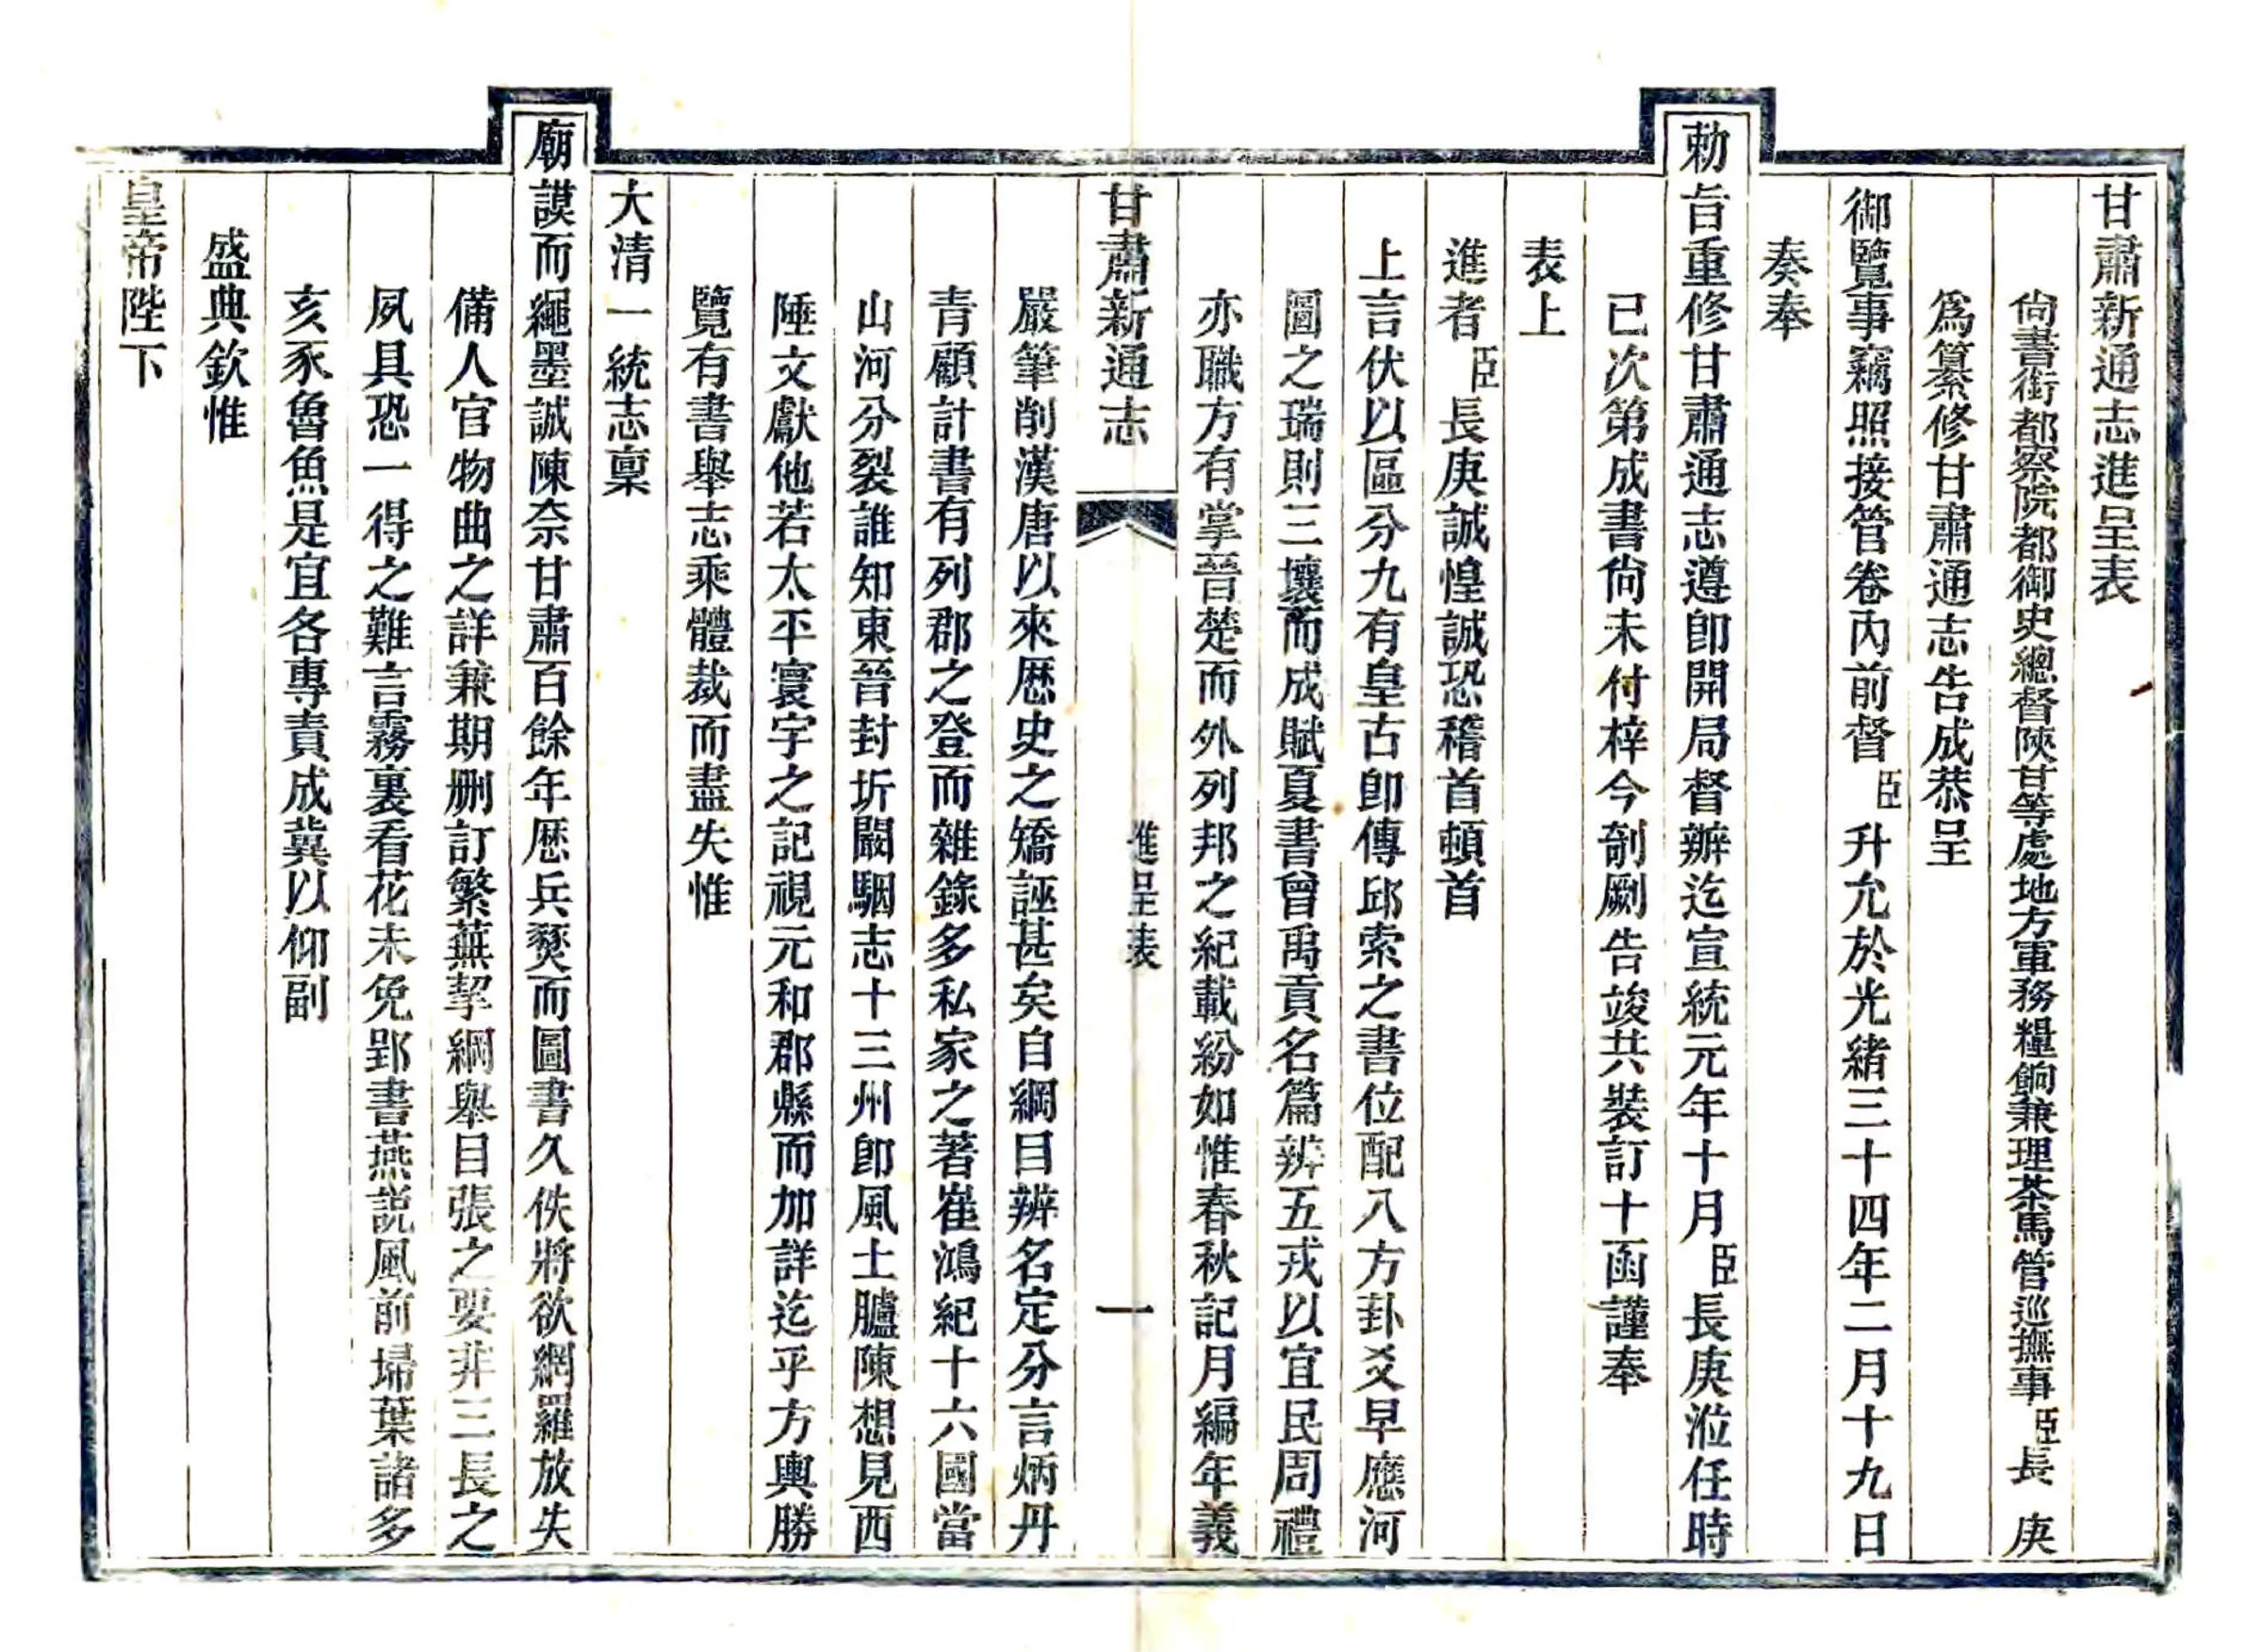 甘肅新通志進呈表
尙書銜都察院都御史總督陝甘等處地方軍務糧餉兼理茶馬管巡撫事臣長庚
爲纂修甘肅通志告成恭呈
御覽事竊照接管卷內前督臣升允於光緖三十四年二月十九日
奏奉
勅旨重修甘肅通志遵卽開局督辦迄宣統元年十月臣長庚涖任時
已次第成書尙未付梓今剞劂告竣共裝訂十函謹奉
表上
進者臣長庚誠惶誠恐稽首頓首
上言伏以區分九有皇古卽傳邱索之書位配八方卦爻早應河
圖之瑞則三壤而成賦夏書曾禹貢名篇辨五戎以宜民周禮
亦職方有掌晉楚而外列邦之紀載紛如惟春秋記月編年義
甘肅新通志 進呈表 一
嚴筆削漢唐以來歷史之矯誣甚矣自綱目辨名定分言炳丹
青顧計書有列郡之登而雜錄多私家之著崔鴻紀十六國當
山河分裂誰知東晉封圻闞駰志十三州卽風土臚陳想見西
陲文獻他若太平寰宇之記視元和郡縣而加詳迄乎方輿勝
覽有書舉志乘體裁而盡失惟
大清一統志稟
廟謨而繩墨誠陳奈甘肅百餘年歷兵燹而圖書久佚將欲網羅放失
備人官物曲之詳兼期删訂繁蕪挈綱舉目張之要非三長之
夙具恐一得之難言霧裏看花未免郢書燕説風前埽葉諸多
亥豕魯魚是宜各專責成冀以仰副
盛典欽惟
皇帝陛下